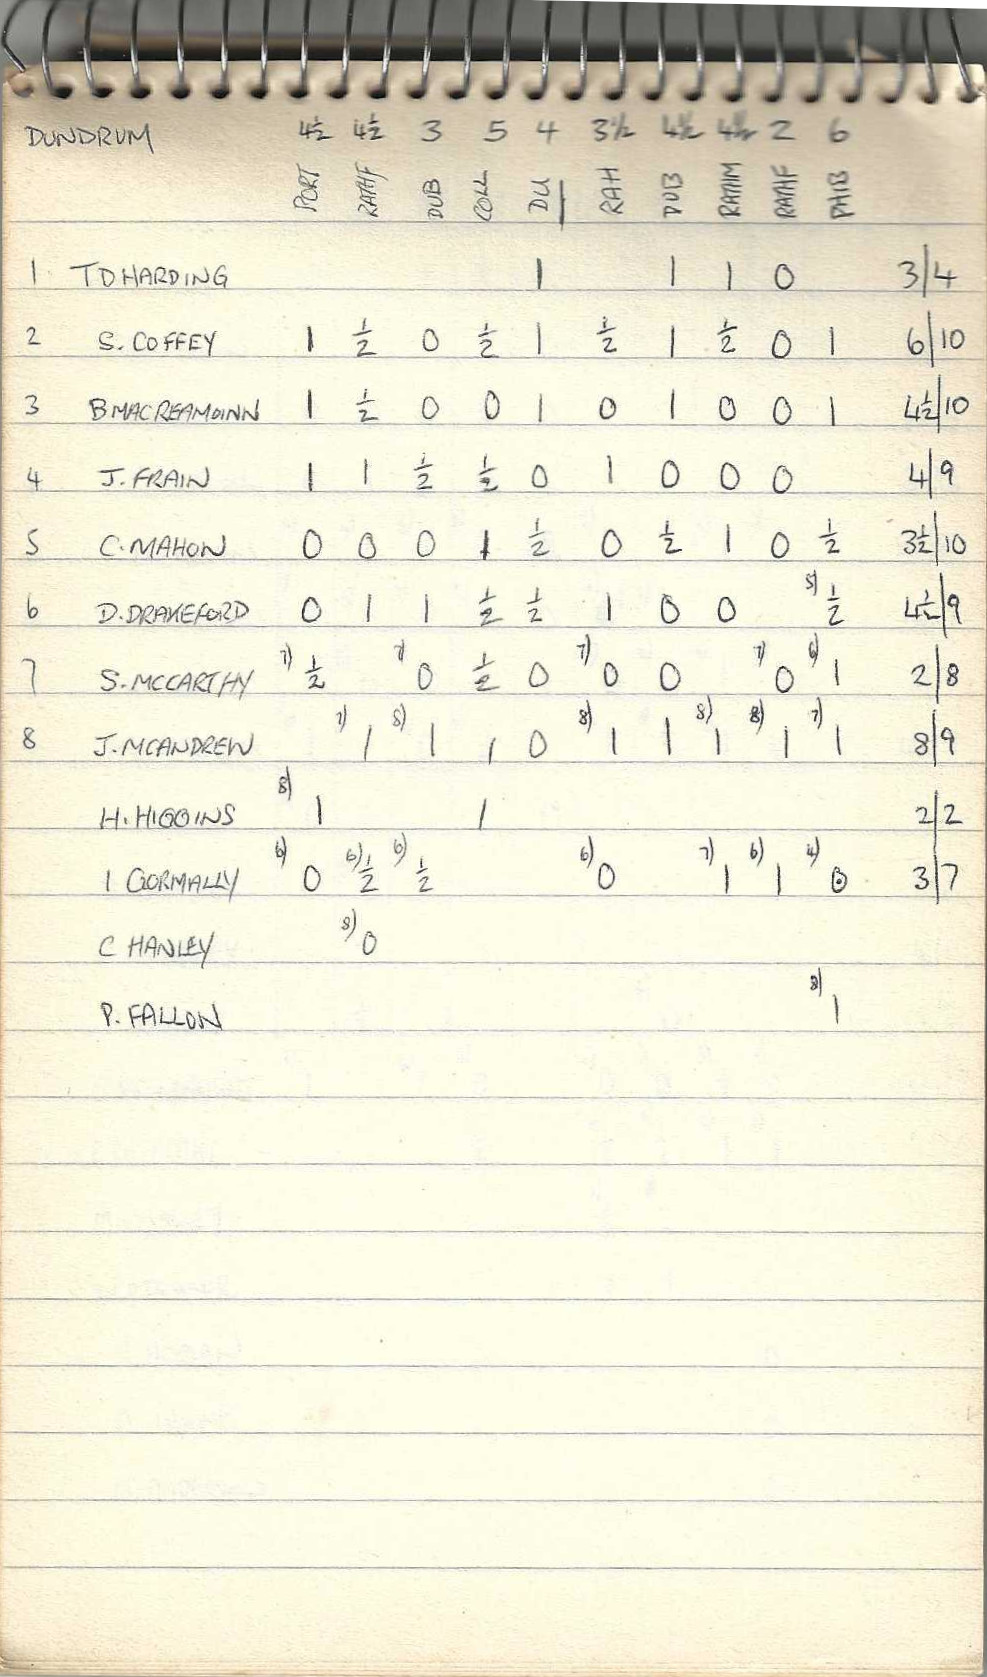 DUNDRUM 4½ 4½ 3 5 4 3½ 4½ 4½ 2 6
PORT RATHF DUB COLL DU RAH DUB RATHM RATHF PHIB
1 T D HARDING 1 1 1 0 3/4
2 S. COFFEY 1 ½ 0 ½ 1 ½ 1 ½ 0 1 6/10
3 B MACREAMOINN 1 ½ 0 0 1 0 1 0 0 1 4½/10
4 J. FRAIN 1 1 ½ ½ 0 1 0 0 0 4/9
5 C. MAHON 0 0 0 1 ½ 0 ½ 1 0 ½ 3½/10
6 D. DRAKEFORD 0 1 1 ½ ½ 1 0 0 5) ½ 4½/9
7 S. MCCARTHY 7) ½ 7) 0 ½ 0 7) 0 0 7) 0 6) 1 2/8
8 J. MCANDREW 7) 1 8) 1 1 0 8) 1 1 8) 1 8) 1 7) 1 8/9
H. HIGGINS 8) 1 1 2/2
I GORMALLY 6) 0 6) ½ 6) ½ 6) 0 7) 1 6) 1 4) 0 3/7
C HANLEY 8) 0
P. FALLON 8) 1